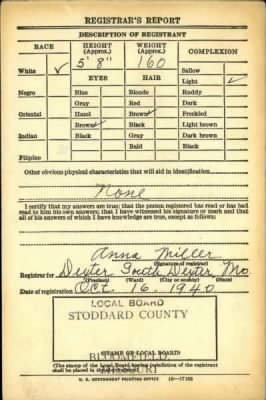 REGISTRAR'S REPORT
DESCRIPTION OF REGISTRANT
RACE HEIGHT (Approx.) WEIGHT (Approx.) COMPLEXION
5' 8" 160
White ✓ Sallow
EYES HAIR Light ✓
Negro Blue Blonde Ruddy
Gray Red Dark
Oriental Hazel Brown ✓ Freckled
Brown ✓ Black Light brown
Indian Black Gray Dark brown
Bald Black
Filipino
Other obvious physical characteristics that will aid in identification
None
I certify that my answers are true; that the person registered has read or has had
read to him his own answers; that I have witnessed his signature or mark and that
all of his answers of which I have knowledge are true, except as follows:
Anna Miller
(Signature of registrar)
Registrar for Dexter South Dexter Mo
(Precinct) (Ward) (City or county) (State)
Date of registration Oct. 16, 1940
LOCAL BOARD
STODDARD COUNTY
BLOOMFIELD,
MISSOURI
(STAMP OF LOCAL BOARD)
(The stamp of the Local Board having jurisdiction of the registrant
shall be placed in the above space.)
U. S. GOVERNMENT PRINTING OFFICE 16—17105